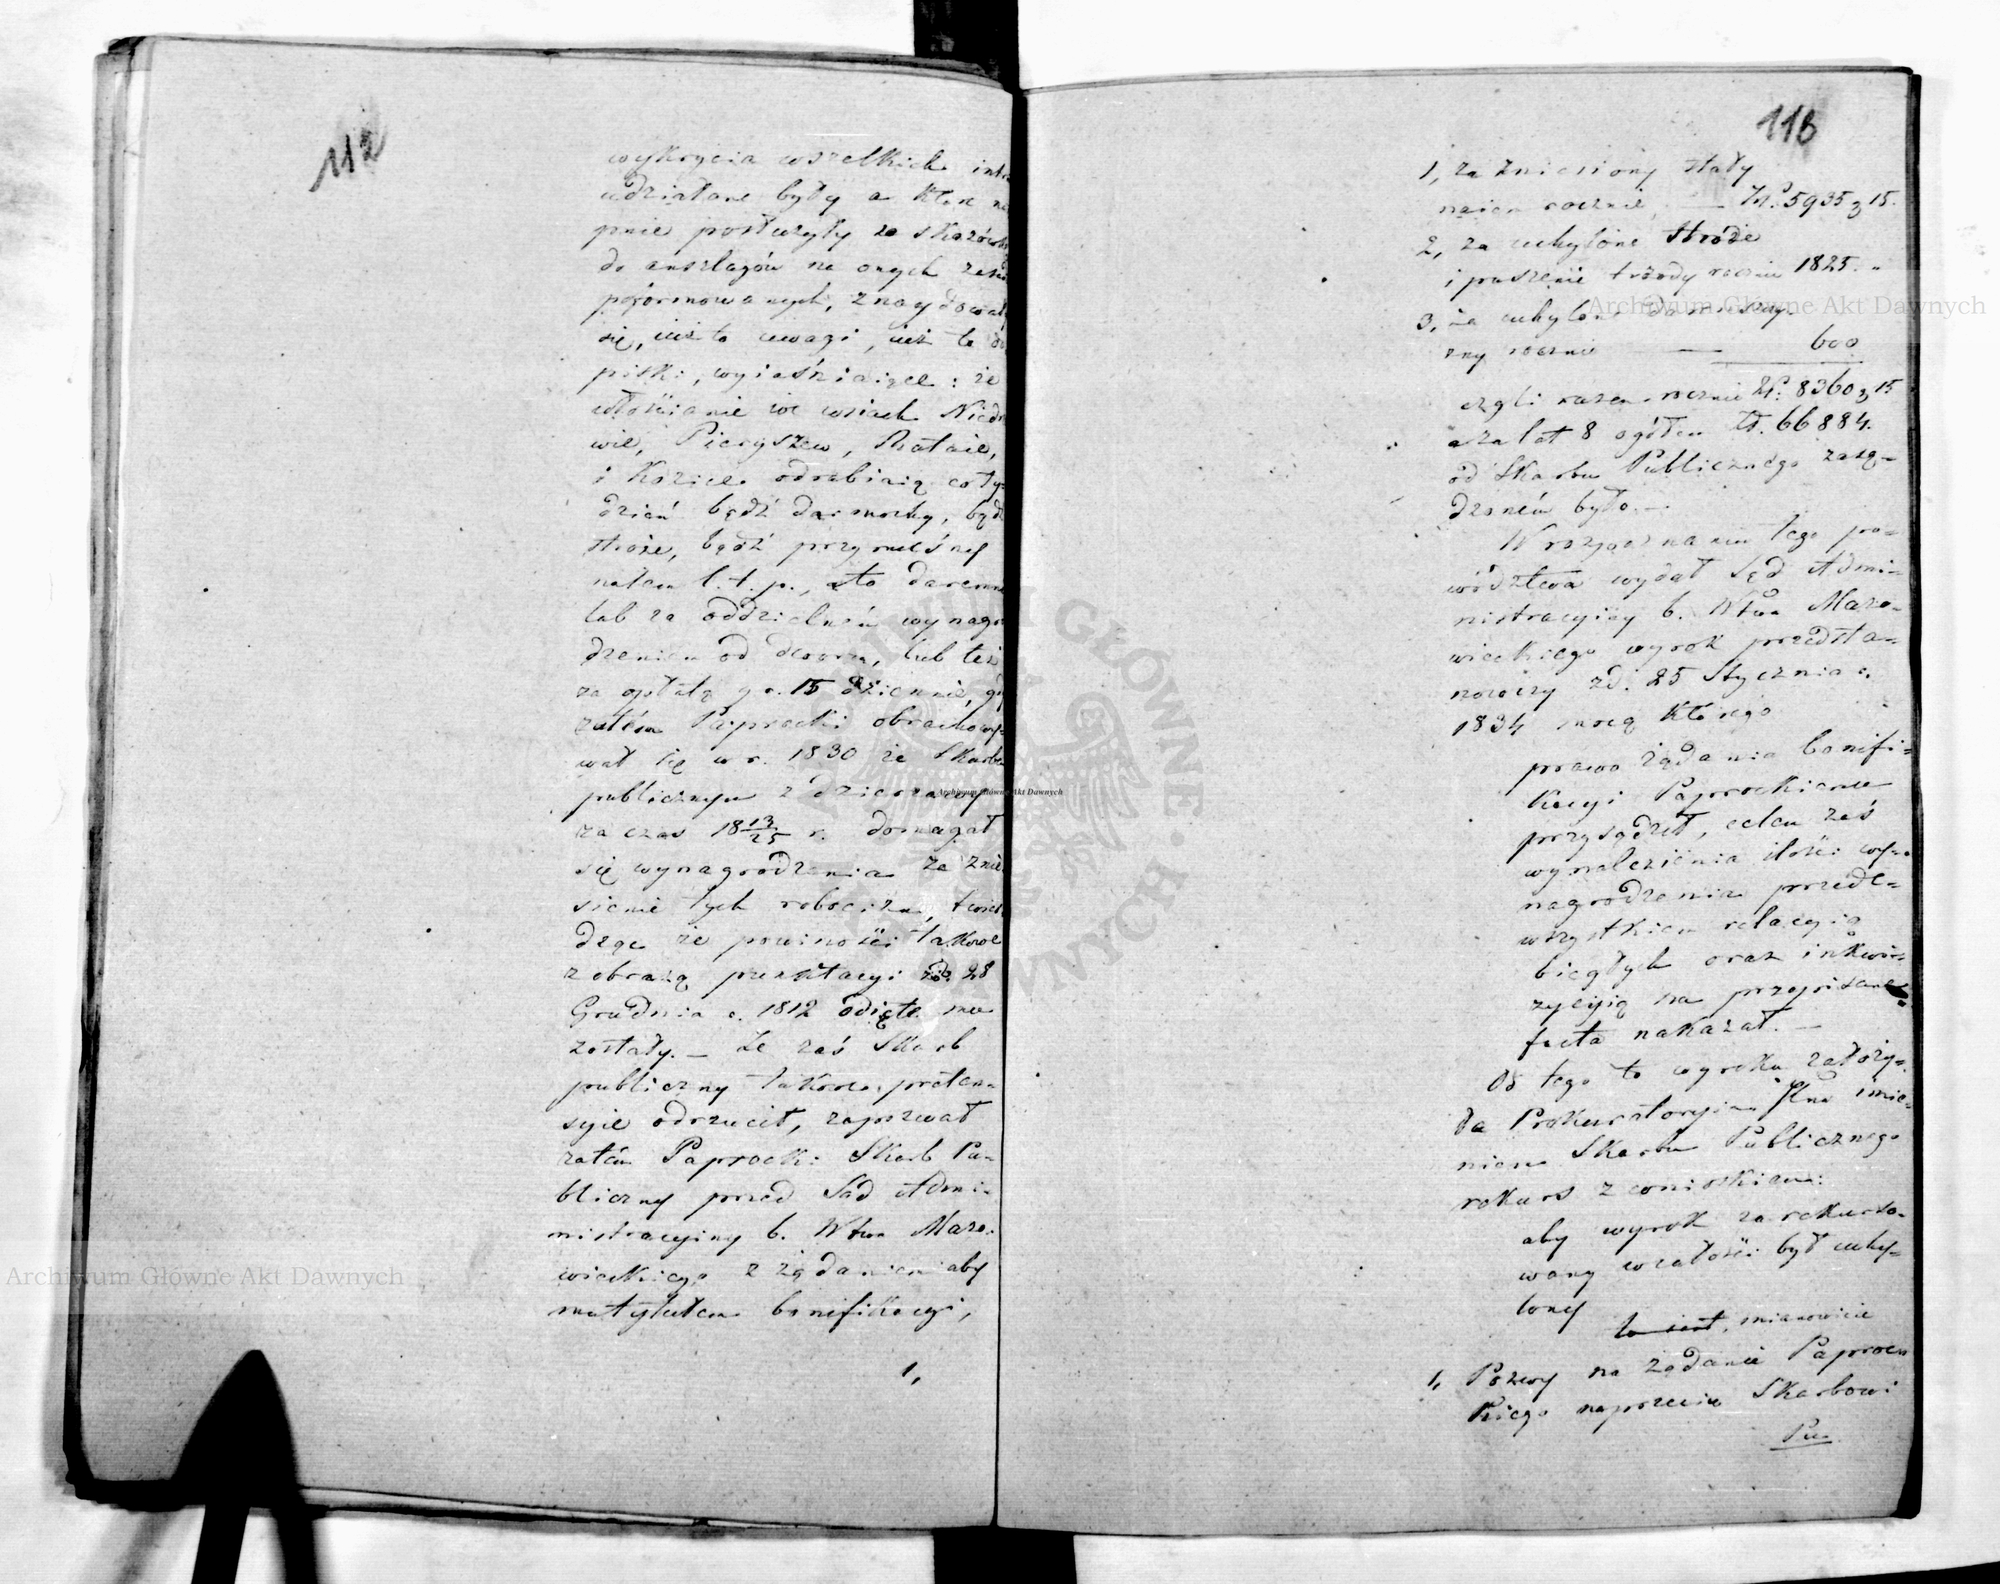 112
wykrycia wszelkich int
udziałane były a które na
pnie posłużyły za skazówk
do anszlagów na onych zasa
poformowanych, znaydował
się, iuż to uwagi, iuż to do
piski, wyiaśniaiące: że
włościanie we wsiach Niedr
wie, Pieryszew, Rataie,
i Kozice odrabiaią coty=
dzień bądź darmochy, bądź
stróże, bądź przymuśny
naiem t. t. p., a to daremn
lub za oddzielném wynagro
dzeniem od dworu, lub też
za opłatą gr. 15 dziennie, gdy
zatém Paprocki obrachowy=
wał się w r. 1830 ze Skarbem
publicznym z dzierżawy
za czas 18 13/25 r. domagał
się wynagrodzenia za znie
sienie tych robocizn, twier
dząc że powinności takowe
z obrazą prezstacyi zd. 28
Grudnia r. 1812 odięte mu
zostały. — Że zaś Skarb
publiczny takowe preten=
syie odrzucił, zapozwał
zatém Paprocki Skarb Pu=
bliczny przed Sąd Admi=
nistracyiny b. Wtwa Mazo=
wieckiego z żądaniem aby
mu tytułem bonifikacyi,
1,
113
1, za zniesiony stały
naiem rocznie, — Zł. 5935 g 15.
2, za uchylone stróże
i paszenie trzody rocznie 1825. "
3, za uchylone darmochy
zny rocznie — 600
czyli razem rocznie Zł: 8360 g 15
a za lat 8 ogółem Zł. 66884.
od Skarbu Publicznego zasą=
dzoném było. —
W rozpoznaniu tego po=
wództwa wydał Sąd Admi=
nistracyiny b. Wtwa Mazo=
wieckiego wyrok przedsta=
nowczy zd. 25 Stycznia r.
1834 mocą którego
prawo żądania bonifi=
kacyi Paprockiemu
przysądził, celem zaś
wynalezienia ilości wy=
nagrodzenia przede=
wszystkiem relacyią
biegłych oraz inkwi=
zycyią na przepisane
facta nakazał. —
Od tego to wyroku założy=
ła Prokuratoryia Jlna imie=
niem Skarbu Publicznego
rekurs z wnioskiem:
aby wyrok zarekurso=
wany w całości był uchy=
lony
to iest, mianowicie
1, Pozwy na żądanie Paproc=
kiego naprzeciw Skarbowi
Pu=
Archiwum Główne Akt Dawnych
Archiwum Główne Akt Dawnych
Archiwum Główne Akt Dawnych